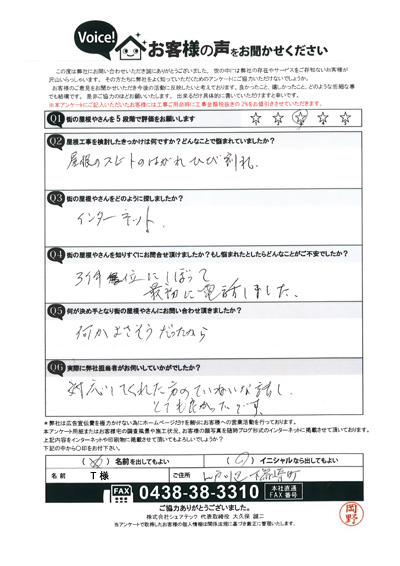 Voice!
お客様の声をお聞かせください
この度は弊社にお問い合わせいただき誠にありがとうございました。世の中には弊社の存在やサービスをご存知ないお客様が
沢山いらっしゃいます。その方たちに弊社をよく知っていただくためのアンケートにご協力いただけないでしょうか。
お客様のご意見をお聞かせいただき今後の活動に反映したいと考えております。良かったこと、嬉しかったこと、どのような些細な事
でも結構です。是非ご協力のほどお願いいたします。出来るだけ具体的に書いていただけますと幸いです。
※本アンケートにご記入いただいたお客様には工事ご用命時に工事金額税抜きの2%をお値引きさせていただきます。
Q1 街の屋根やさんを5段階で評価をお願いします
Q2 屋根工事を検討したきっかけは何ですか？どんなことで悩まれていましたか？
屋根のスレートのはがれ ひび割れ
Q3 街の屋根やさんをどのように探しましたか？
インターネット
Q4 街の屋根やさんを知りすぐにお問合せ頂けましたか？もし悩まれたとしたらどんなことがご不安でしたか？
3件 位にしぼって
最初に電話しました。
Q5 何が決め手となり街の屋根やさんにお問い合わせ頂きましたか？
何かよさそうだったから
Q6 実際に弊社担当者がお伺いしていかがでしたか？
対応してくれた方のていねいな話し
とても良かったです。
＊弊社は広告宣伝費を極力かけない為にホームページだけを頼りにお客様への営業活動を行っております。
本アンケート用紙またはお客様宅の調査風景や施工状況、お客様の顔写真を随時ブログ形式のインターネットに掲載させて頂いております。
上記内容をインターネットや印刷物に掲載させて頂いてもよろしいでしょうか？
下記の中から〇印をお付下さい。
名前を出してもよい ( ) イニシャルなら出してもよい
名前 T様 ご住所 江戸川区 町
FAX 0438-38-3310 本社直通 FAX番号
ご協力ありがとうございました。
株式会社シェアテック 代表取締役 大久保 誠二
当アンケートで取得したお客様の個人情報は関係法規に基づき厳正に管理いたします。
岡野